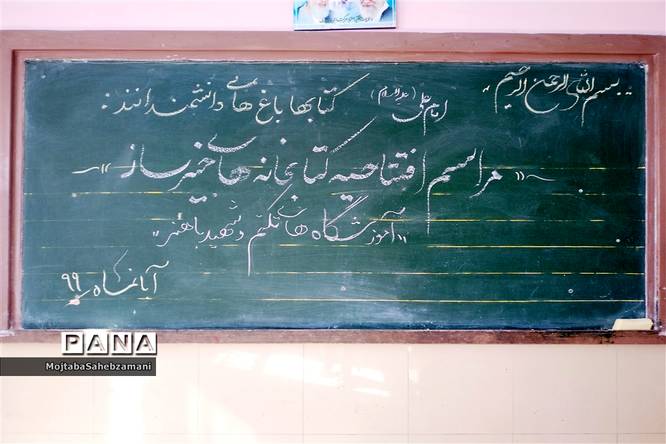 بسم الله الرحمن الرحیم
امام علی (علیه السلام) کتابها باغ های دانشمندانند:
مراسم افتتاحیه کتابخانه های خیرساز
"آموزشگاه های تکتم و شهید باهنر"
آبانماه ۹۹
PANA
MojtabaSahebzamani